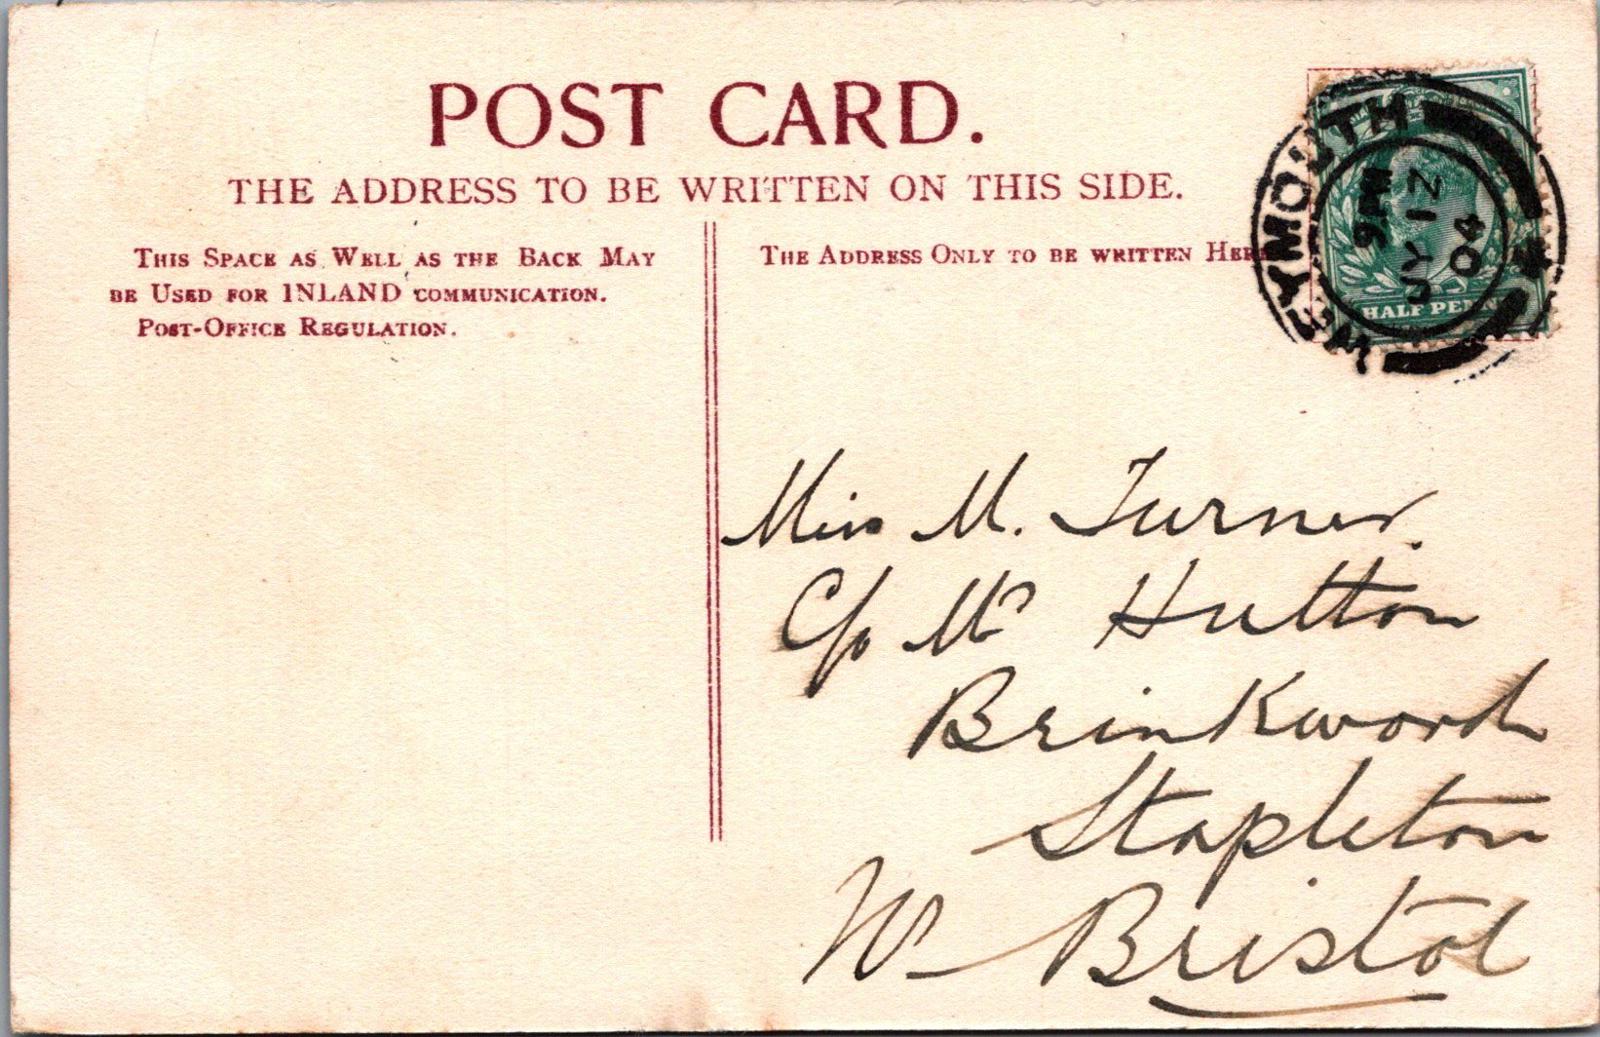 POST CARD.
THE ADDRESS TO BE WRITTEN ON THIS SIDE.
THIS SPACE AS WELL AS THE BACK MAY
BE USED FOR INLAND COMMUNICATION.
POST-OFFICE REGULATION.
THE ADDRESS ONLY TO BE WRITTEN HERE
WEYMOUTH
9 PM
JY 12
04
HALF PENNY
Miss M. Turner.
C/o Mr Hutton
Brinkworth
Stapleton
Nr Bristol